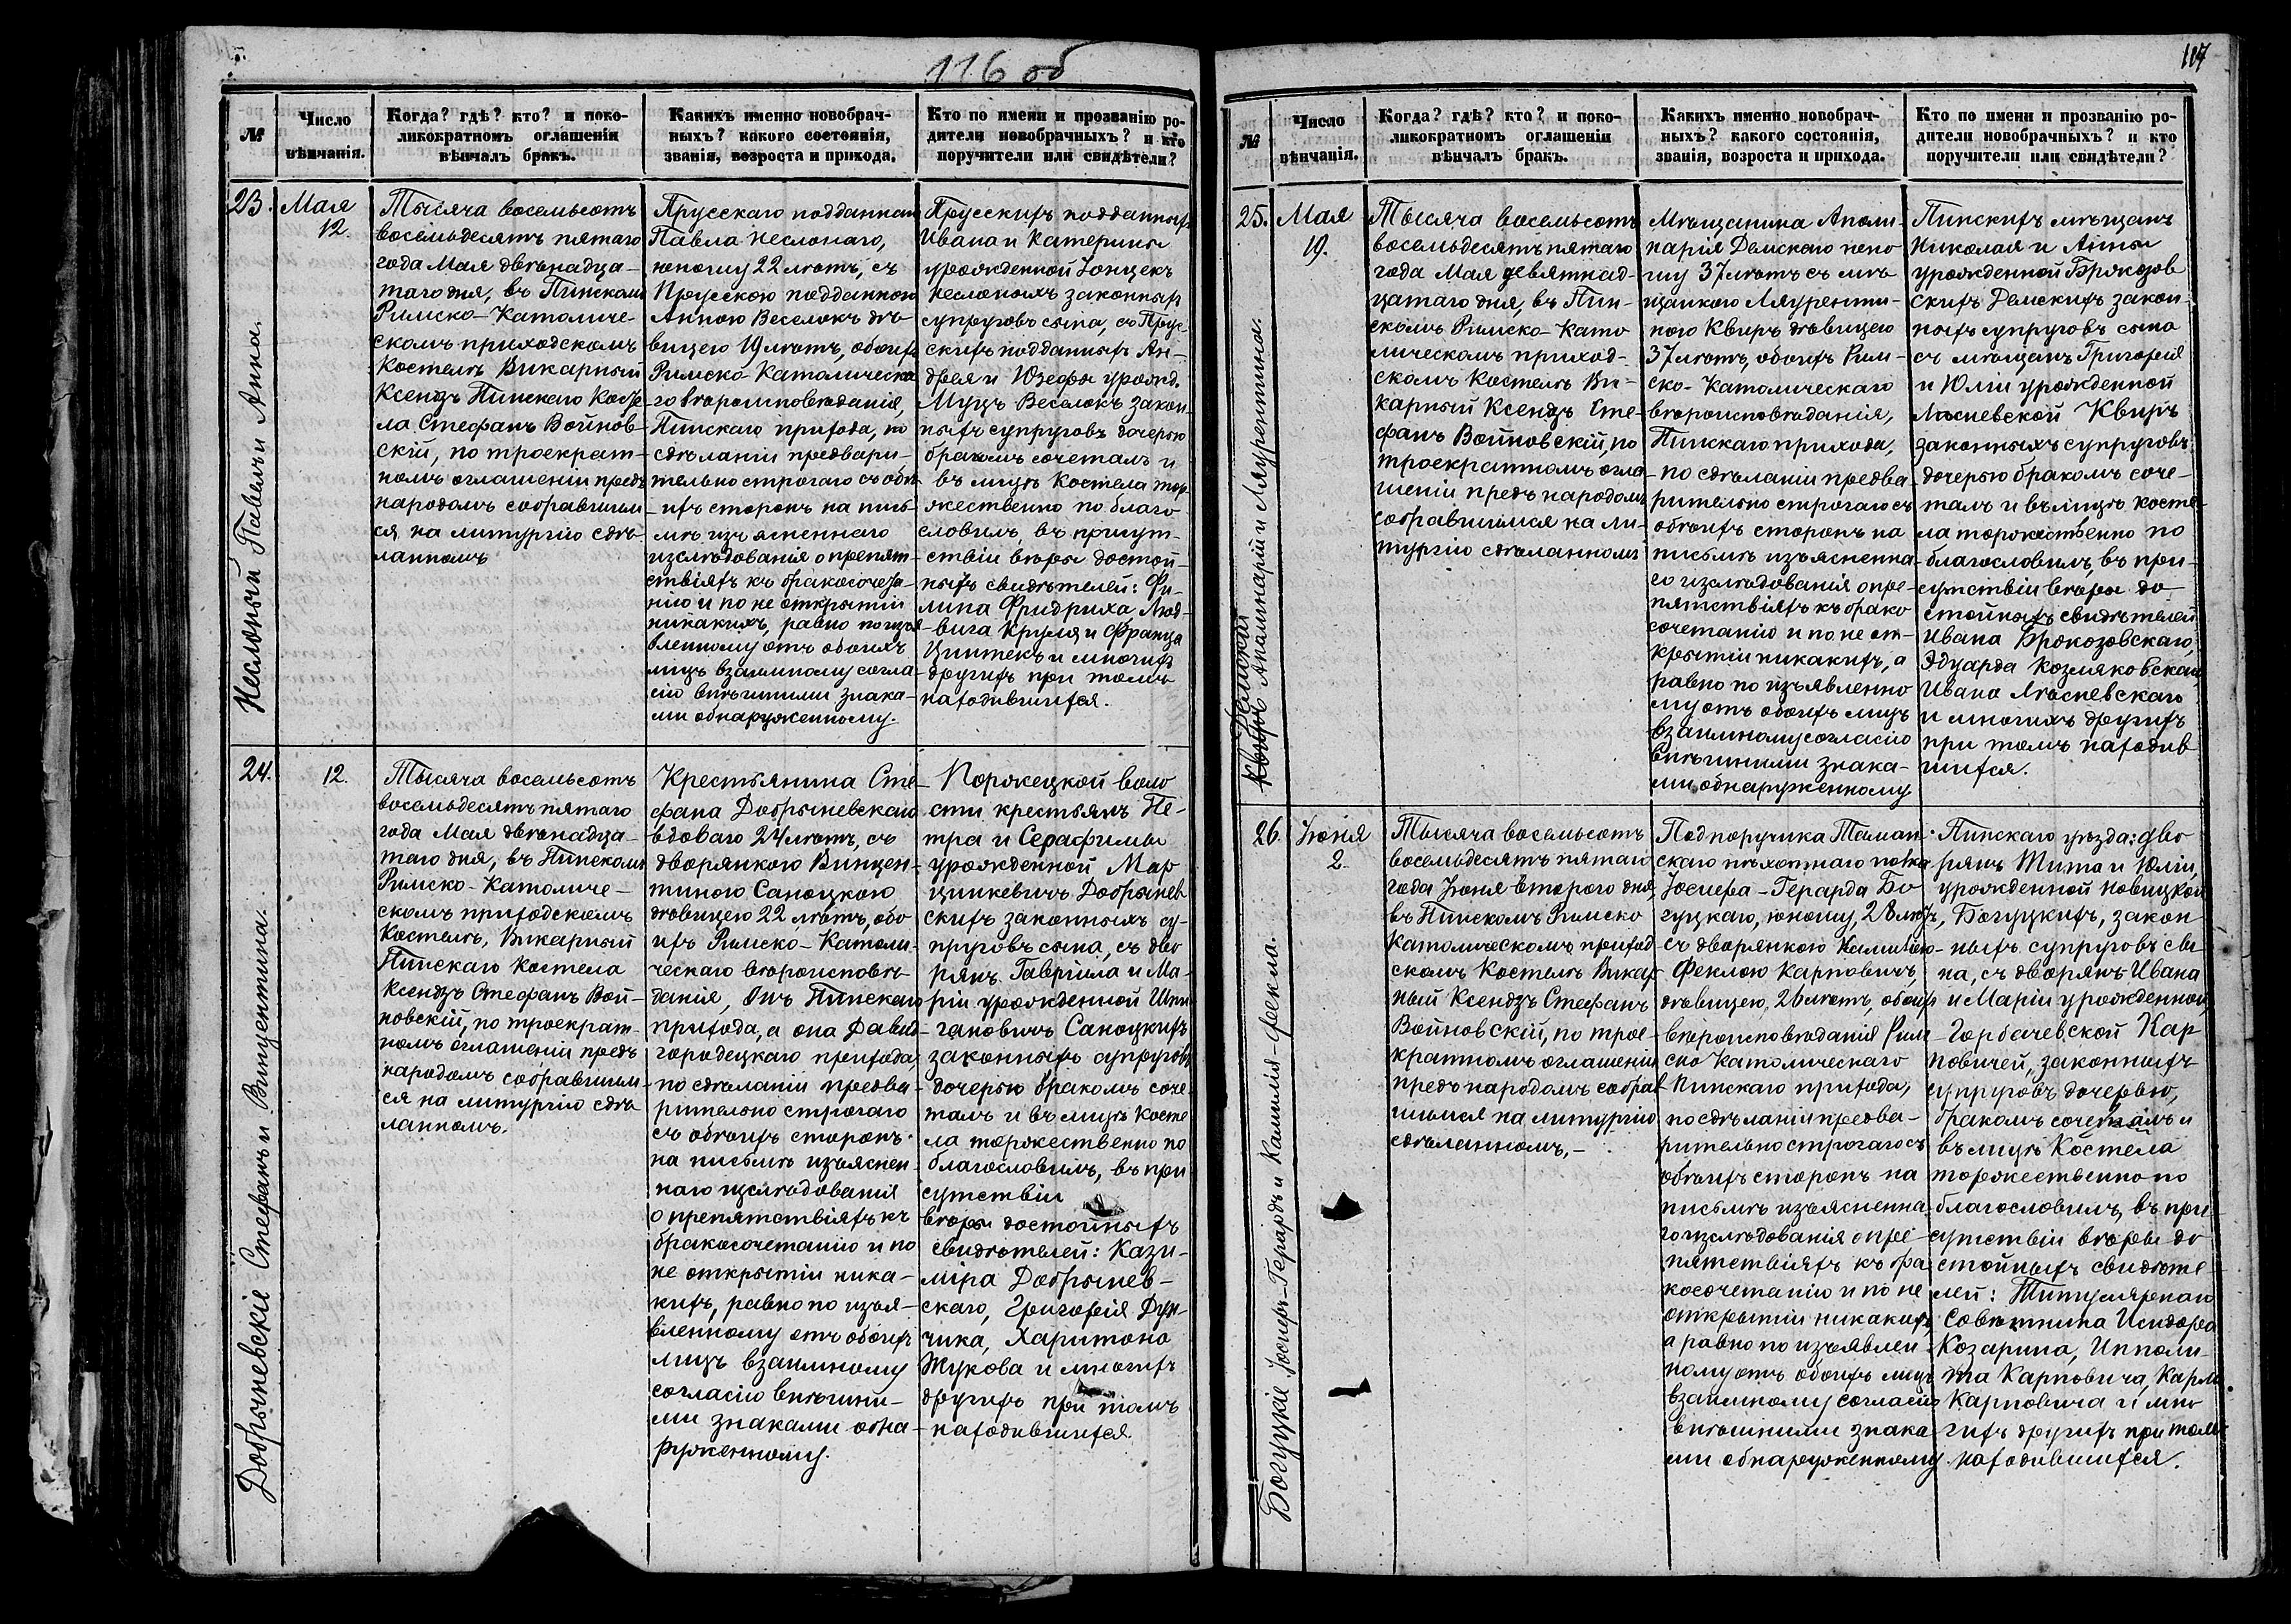 116 об
№
Число
вѣнчанія.
Когда? гдѣ? кто? и поко-
ликократномъ оглашеніи
вѣнчалъ бракъ.
Какихъ именно новобрач-
ныхъ? какого состоянія,
званія, возроста и прихода.
Кто по имени и прозванію ро-
дители новобрачныхъ? и кто
поручители или свидѣтели?
23.
Мая
12.
Павелъ и Анна.
Тысяча восемьсотъ
восемьдесятъ пятаго
года Мая двѣнадца-
таго дня, въ Пинскомъ
Римско-Католиче-
скомъ приходскомъ
Костелѣ Викарный
Ксендзъ Пинскаго Косте
ла Стефанъ Войнов-
скій, по троекрат-
номъ оглашеніи предъ
народомъ собравшим-
ся на литургію сдѣ-
ланномъ
Прусскаго подданнаго
Павла
юношу 22 лѣтъ, съ
Прусскою подданною
Анною Веселокъ дѣ-
вицею 19 лѣтъ, обоихъ
Римско-Католическа
го вѣроисповѣданія,
Пинскаго прихода, по
сдѣланіи предвари-
тельно строгаго съ обо-
ихъ сторонъ на пись-
мѣ изъясненнаго
изслѣдованія о препят-
ствіяхъ къ бракосочета-
нію и по не открытіи
никакихъ, равно по изъя
вленному отъ обоихъ
лицъ взаимному согла-
сію внѣшними знака-
ми обнаруженному.
Прусскихъ подданныхъ
Ивана и Катерины
урожденной
законныхъ
супруговъ сына, съ Прус
скихъ подданныхъ Ан-
дрея и Юзефы урожд.
Муцъ Веселокъ закон-
ныхъ супруговъ дочерью
бракомъ сочеталъ и
въ лицѣ Костела тор-
жественно по благо
словилъ, въ присут-
ствіи вѣры достой-
ныхъ свидѣтелей: Фи-
липа Фридриха Люд-
вига Круля и Франца
Циптекъ и многихъ
другихъ при томъ
находившихся.
24.
12.
Добрыневскіе Стефанъ и Винцентина.
Тысяча восемьсотъ
восемьдесятъ пятаго
года Мая двѣнадца-
таго дня, въ Пинскомъ
Римско-Католиче-
скомъ приходскомъ
Костелѣ, Викарный
Пинскаго Костела
Ксендзъ Стефанъ Вой-
новскій, по троекрат-
номъ оглашеніи предъ
народомъ собравшим-
ся на литургію сдѣ
ланномъ.
Крестьянина Сте-
фана Добрыневскаго
вдоваго 24 лѣтъ, съ
дворянкою Винцен-
тиною Саноцкою
дѣвицею 22 лѣтъ, обо
ихъ Римско-Католи-
ческаго вѣроисповѣ-
данія, Онъ Пинскаго
прихода, а она Давид-
городецкаго прихода,
по сдѣланіи предва-
рительно строгаго
съ обоихъ сторонъ
на письмѣ изъяснен-
наго изслѣдованія
о препятствіяхъ къ
бракосочетанію и по
не открытіи ника-
кихъ, равно по изъя-
вленному отъ обоихъ
лицъ взаимному
согласію внѣшни-
ми знаками обна-
руженному.
Порѣцкой воло
сти крестьянъ Пе-
тра и Серафимы
урожденной Мар-
цинкевичъ Добрынев
скихъ законныхъ су-
пруговъ сына, съ дво
рянъ Гавріила и Ма-
ріи урожденной
Саноцкихъ
законныхъ супруговъ
дочерью бракомъ соче
талъ и въ лицѣ Косте
ла торжественно по
благословилъ, въ при
сутствіи
вѣры достойныхъ
свидѣтелей: Кази-
міра Добрынев-
скаго, Григорія Дун-
чика, Харитона
Жукова и многихъ
другихъ при томъ
находившихся.
117
№
Число
вѣнчанія.
Когда? гдѣ? кто? и поко-
ликократномъ оглашеніи
вѣнчалъ бракъ.
Какихъ именно новобрач-
ныхъ? какого состоянія,
званія, возроста и прихода.
Кто по имени и прозванію ро-
дители новобрачныхъ? и кто
поручители или свидѣтели?
25.
Мая
19.
Аполинарій и Лаурентина.
Тысяча восемьсотъ
восемьдесятъ пятаго
года Мая девятнад-
цатаго дня, въ Пин-
скомъ Римско-Като
лическомъ приход-
скомъ Костелѣ Ви-
карный Ксендзъ Сте-
фанъ Войновскій, по
троекратномъ огла-
шеніи предъ народомъ
собравшимся на ли-
тургію сдѣланномъ
Мѣщанина Аполи-
нарія Демскаго юно
шу 37 лѣтъ съ мѣ
щанкою Лауренти-
ною Квиръ дѣвицею
37 лѣтъ, обоихъ Рим-
ско-Католическаго
вѣроисповѣданія,
Пинскаго прихода,
по сдѣланіи предва-
рительно строгаго съ
обоихъ сторонъ на
письмѣ изъясненна-
го изслѣдованія о пре-
пятствіяхъ къ брако
сочетанію и по не от-
крытіи никакихъ, а
равно по изъявленно
му отъ обоихъ лицъ
взаимному согласію
внѣшними знака-
ми обнаруженному
Пинскихъ мѣщанъ
Николая и Анны
урожденной Брокозов
скихъ Демскихъ закон-
ныхъ супруговъ сына
съ мѣщанъ Григорія
и Юліи урожденной
Лѣсневской Квиръ
законныхъ супруговъ
дочерью бракомъ соче-
талъ и въ лицѣ косте-
ла торжественно по
благословилъ, въ при-
сутствіи вѣры до-
стойныхъ свидѣтелей
Ивана Брокозовскаго,
Эдуарда Козляковскаго,
Ивана Лѣсневскаго
и многихъ другихъ
при томъ находив
шихся.
26.
Іюня
2.
Богуцкіе Іосифъ-Герардъ и Камилія-Фекла.
Тысяча восемьсотъ
восемьдесятъ пятаго
года Іюня второго дня,
въ Пинскомъ Римско
Католическомъ приход
скомъ Костелѣ Викар
ный Ксендзъ Стефанъ
Войновскій, по трое-
кратномъ оглашеніи
предъ народомъ собрав
шимся на литургію
сдѣланномъ,-
Подпоручика Таман-
скаго пѣхотнаго полка
Іосифа-Герарда Бо-
гуцкаго, юношу, 28 лѣтъ,
съ дворянкою Камиліею-
Феклою Карповичъ,
дѣвицею, 26 лѣтъ, обоихъ
вѣроисповѣданія Рим
ско Католическаго
Пинскаго прихода,
по сдѣланіи предва-
рительно строгаго съ
обоихъ сторонъ на
письмѣ изъясненна-
го изслѣдованія о пре-
пятствіяхъ къ бра
косочетанію и по не
открытіи никакихъ,
а равно по изъявлен
ному отъ обоихъ лицъ
взаимному согласію
внѣшними знака-
ми обнаруженному
Пинскаго уѣзда: дво
рянъ Тита и Юліи,
урожденной Новицкой
Богуцкихъ, закон-
ныхъ супруговъ сы
на, съ дворянъ Ивана
и Маріи урожденной
Горбачевской Кар
повичей, законныхъ
супруговъ дочерью,
бракомъ сочеталъ и
въ лицѣ Костела
торжественно по
благословилъ, въ при
сутствіи вѣры до
стойныхъ свидѣте
лей: Титулярнаго
Совѣтника Исидора
Козарина, Иппо
та Карповича, Карла
Карповича и мно
гихъ другихъ при томъ
находившихся.